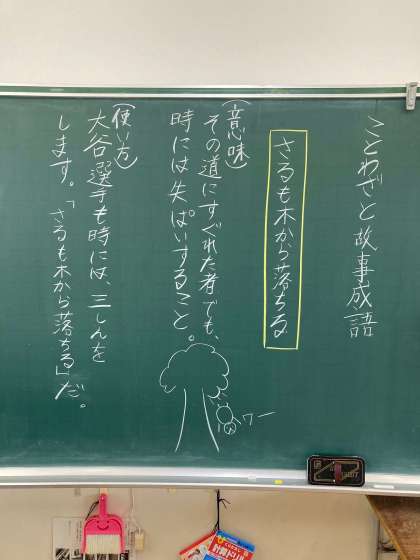 ことわざと故事成語
さるも木から落ちる
（意味）
その道にすぐれた者でも、
時には失ぱいすること。
（使い方）
大谷選手も時には、三しんを
します。「さるも木から落ちる」だ。
ワー
計算ドリル